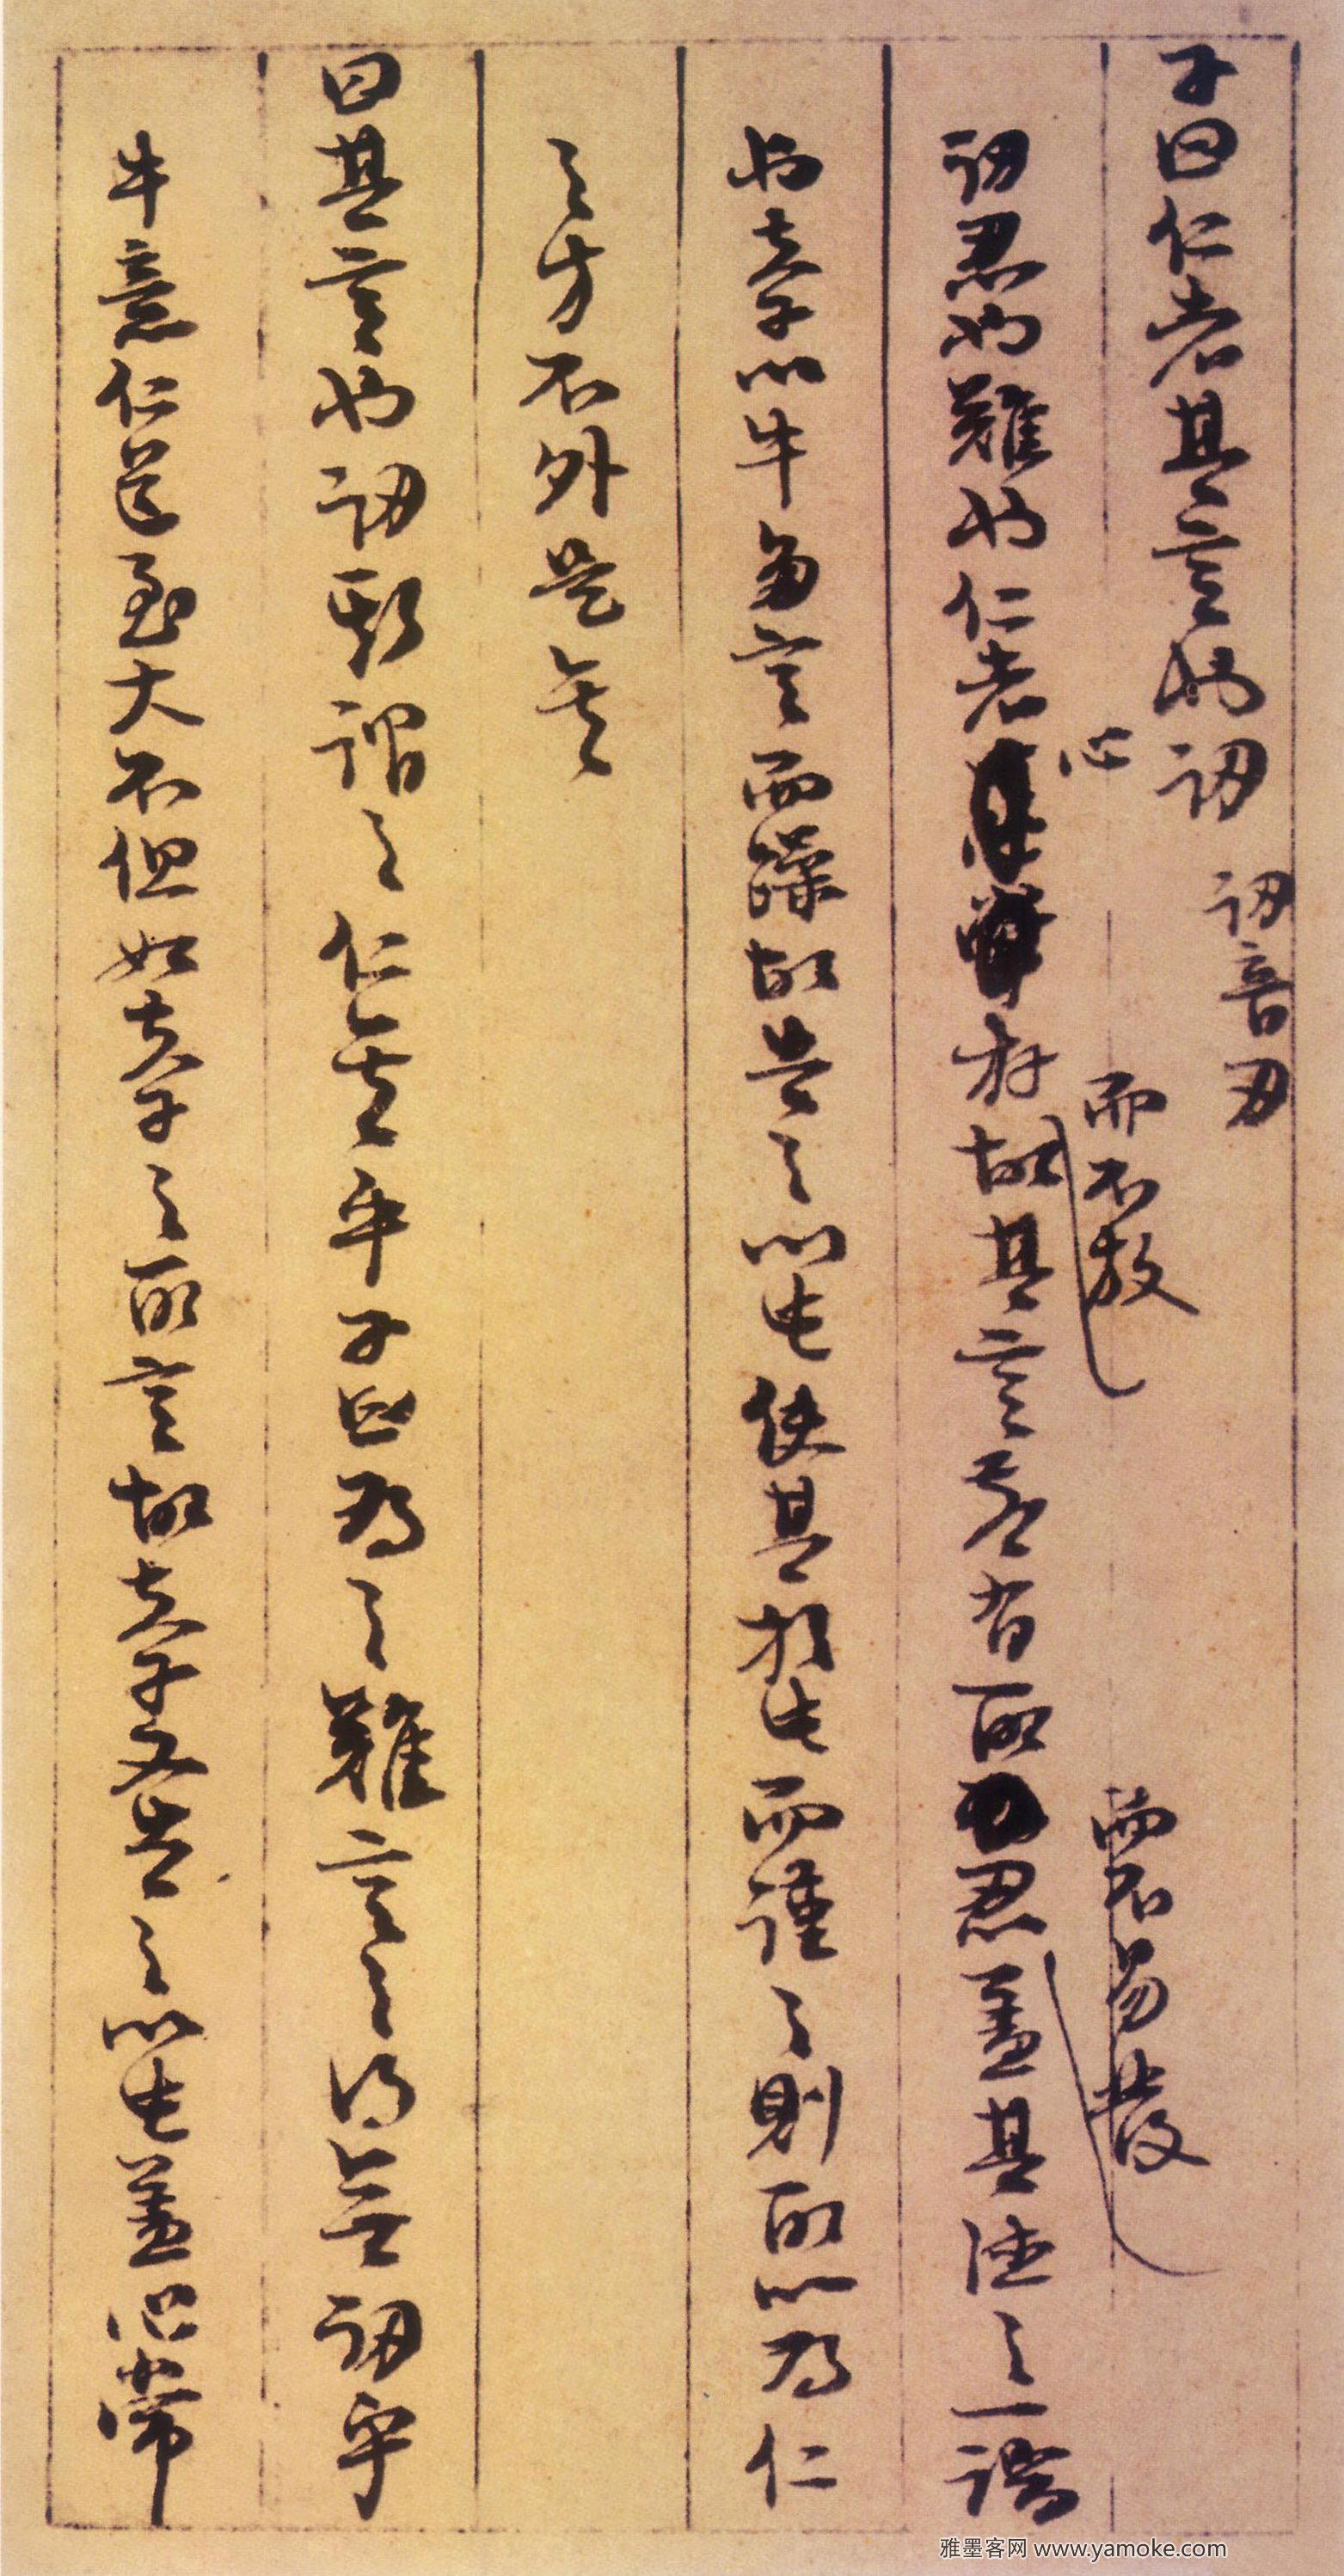 子曰仁者其言也訒 訒音刃
心
而不放
而不易發
訒忍也難也仁者存故其言若有所忍蓋其德之一端
也夫子以牛多言而躁故告之以此使其於此而謹之則所以為仁
之方不外是矣
曰其言也訒斯謂之仁矣乎子曰為之難言之得無訒乎
牛意仁道至大不但如夫子之所言故夫子又告之以此蓋心常
雅墨客网 www.yamoke.com